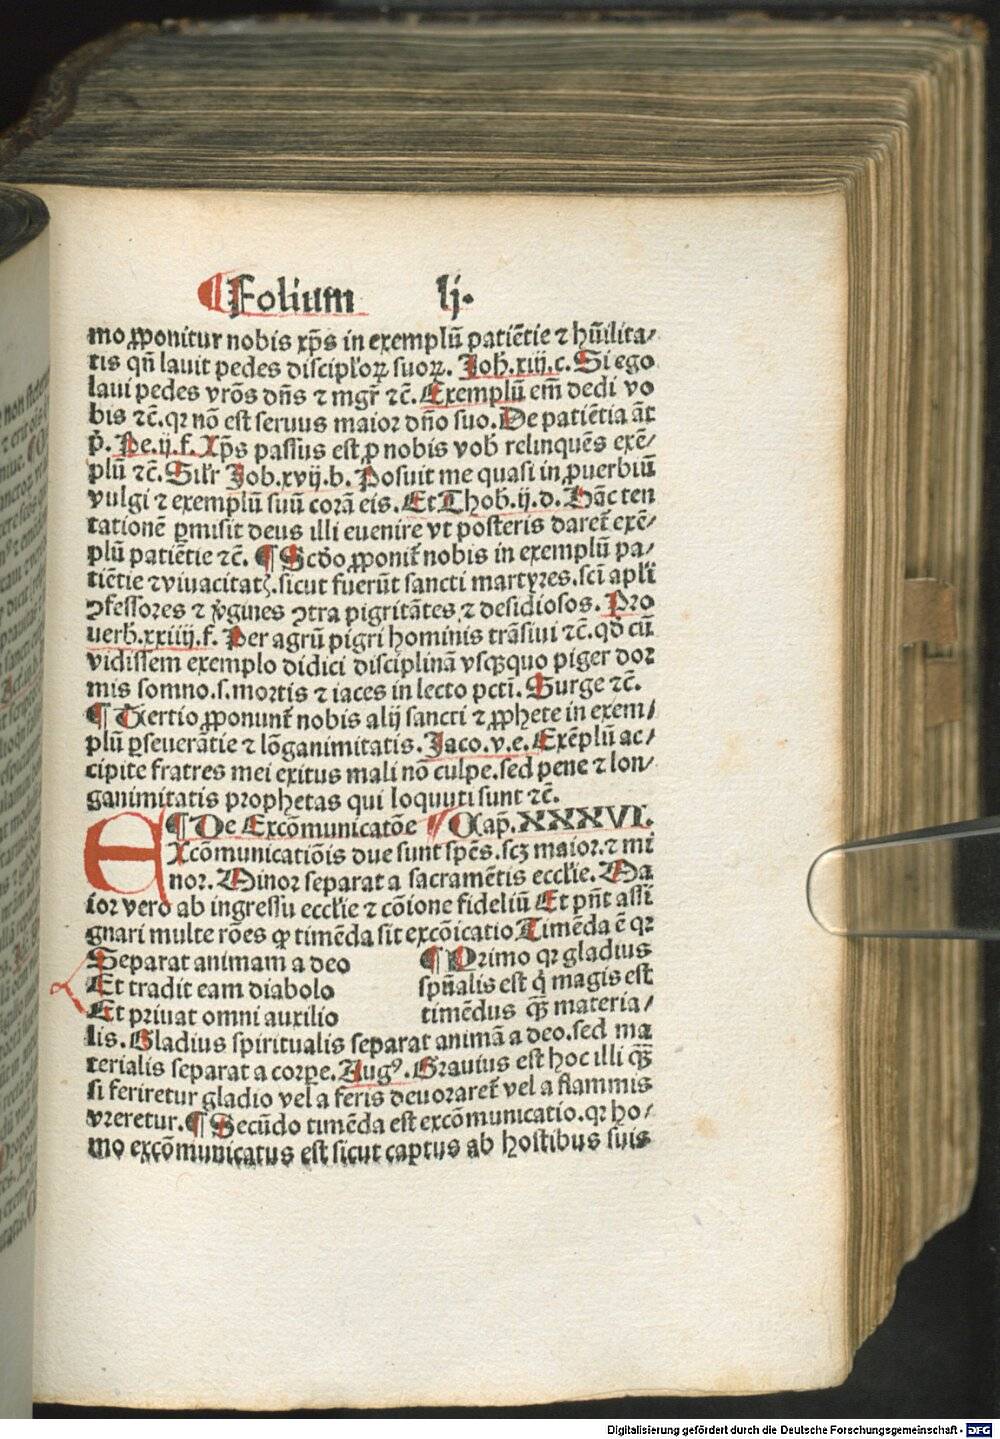 ¶ Folium lj.
mo ꝓponitur nobis xp̄s in exemplū patiētie ⁊ hūilita⸗
tis qn̄ lauit pedes discipl'oꝝ suoꝝ. Joh̄.xiij.c. Si ego
laui pedes vr̄os dn̄s ⁊ mgr̄ ⁊c̄. Exemplū em̄ dedi vo
bis ⁊c̄.qꝛ nō est seruus maior dn̄o suo. De patiētia āt
p̄. Pe.ij.f. Xp̄s passus est ꝓ nobis vob̄ relinquēs exē⸗
plū ⁊c̄. Sil'r Job.xvij.b. Posuit me quasi in ꝓuerbiū
vulgi ⁊ exemplū suū corā eis. Et Thob̄.ij.d. Hāc ten
tationē ꝑmisit deus illi euenire vt posteris daret̄ exē⸗
plū patiētie ⁊c̄. ¶ Scd̄o ꝓponit̄ nobis in exemplū pa⸗
tiētie ⁊ viuacitatꝭ.sicut fuerūt sancti martyres.sc̄i apl'i
ꝯfessores ⁊ v̄gines ꝯtra pigritātes ⁊ desidiosos. Pro
uerb̄.xxiiij.f. Per agrū pigri hominis trāsiui ⁊c̄. qd̄ cū
vidissem exemplo didici disciplinā vsqꝫquo piger dor
mis somno.s.mortis ⁊ iaces in lecto pcti̅. Surge ⁊c̄.
¶ Tiertio ꝓponunt̄ nobis alij sancti ⁊ ꝓphete in exem⸗
plū ꝑseuerātie ⁊ lōganimitatis. Jaco.v.e. Exēplū ac⸗
cipite fratres mei exitus mali nō culpe.sed pene ⁊ lon⸗
ganimitatis prophetas qui loquuti sunt ⁊c̄.
¶ De Excōmunicatōe ¶ Cap̄. XXXVI.
EXcōmunicatiōis due sunt spēs.scꝫ maior.⁊ mi
nor. Minor separat a sacramētis eccl'ie. Ma
ior vero ab ingressu eccl'ie ⁊ cōione fideliū Et pn̄t assi
gnari multe rōes ꝙ timēda sit excōicatio Timēda ē qꝛ
Separat animam a deo
Et tradit eam diabolo
Et priuat omni auxilio
¶ Primo qꝛ gladius
spūalis est q̄ magis est
timēdus qꝫ̄ materia⸗
lis. Gladius spiritualis separat animā a deo.sed ma
terialis separat a corpe. Augꝰ. Grauius est hoc illi qꝫ̄
si feriretur gladio vel a feris deuoraret̄ vel a flammis
vreretur. ¶ Secūdo timēda est excōmunicatio.qꝛ ho⸗
mo excōmunicatus est sicut captus ab hostibus suis
Digitalisierung gefördert durch die Deutsche Forschungsgemeinschaft - DFG